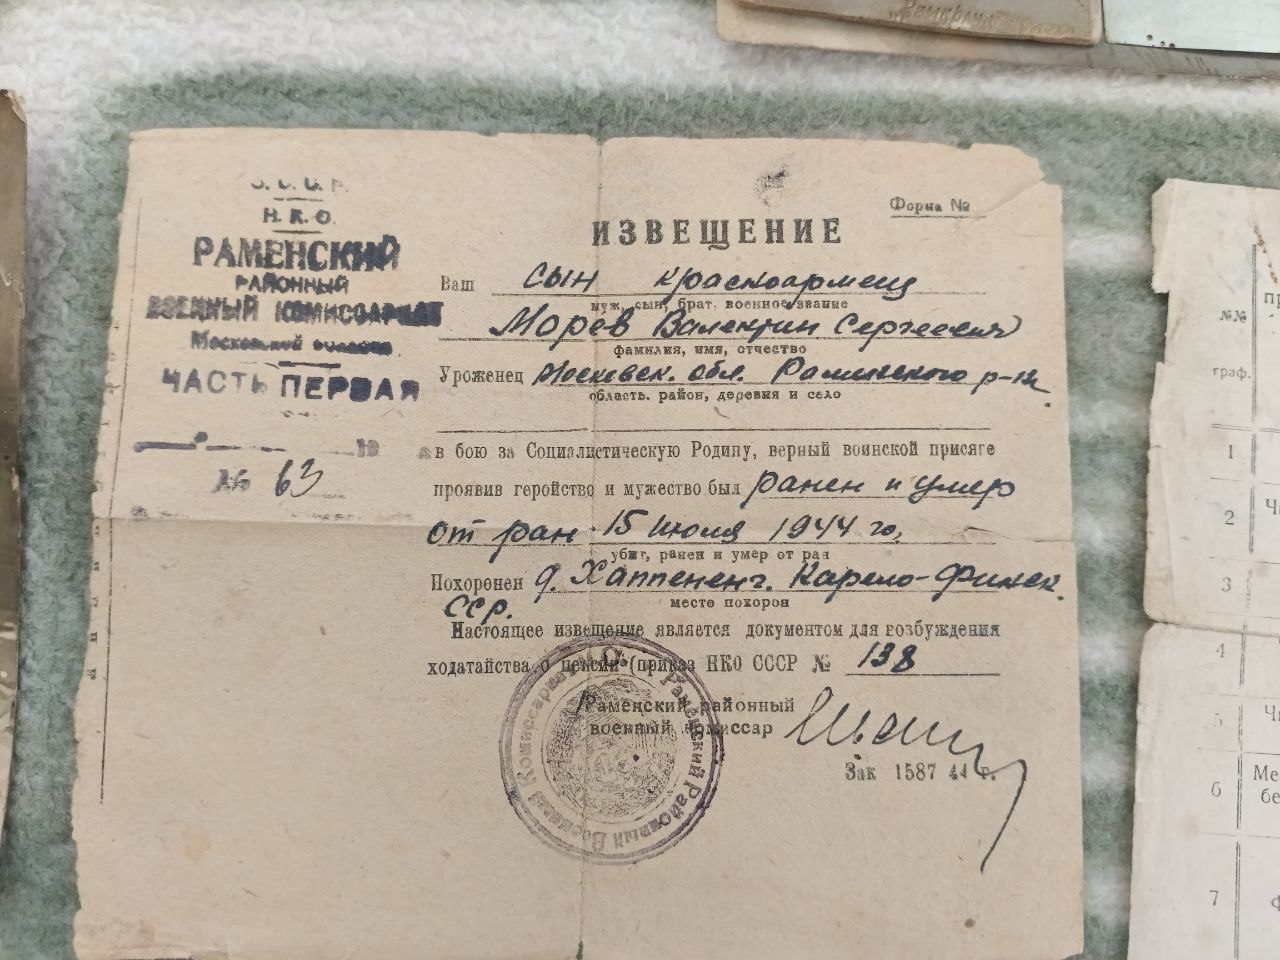 С. С. С. Р.
Н. К. О.
РАМЕНСКИЙ
РАЙОННЫЙ
ВОЕННЫЙ КОМИССАРИАТ
Московской области
ЧАСТЬ ПЕРВАЯ
19
№ 63
Форма №
ИЗВЕЩЕНИЕ
Ваш сын красноармеец
муж, сын, брат, военное звание
Морев Валентин Сергеевич
фамилия, имя, отчество
Уроженец Московск. обл. Раменского р-на
область, район, деревня и село
в бою за Социалистическую Родину, верный воинской присяге
проявив геройство и мужество был ранен и умер
от ран 15 июля 1944 го.
убит, ранен и умер от ран
Похоронен д. Карело-Финск.
ССР.
место похорон
Настоящее извещение является документом для возбуждения
ходатайства о пенсии (приказ НКО СССР № 138
Раменский районный
военный комиссар
Зак 1587 44 г.
Раменский Районный Военный Комиссариат
№№
граф.
1
2
3
4
5
6
7